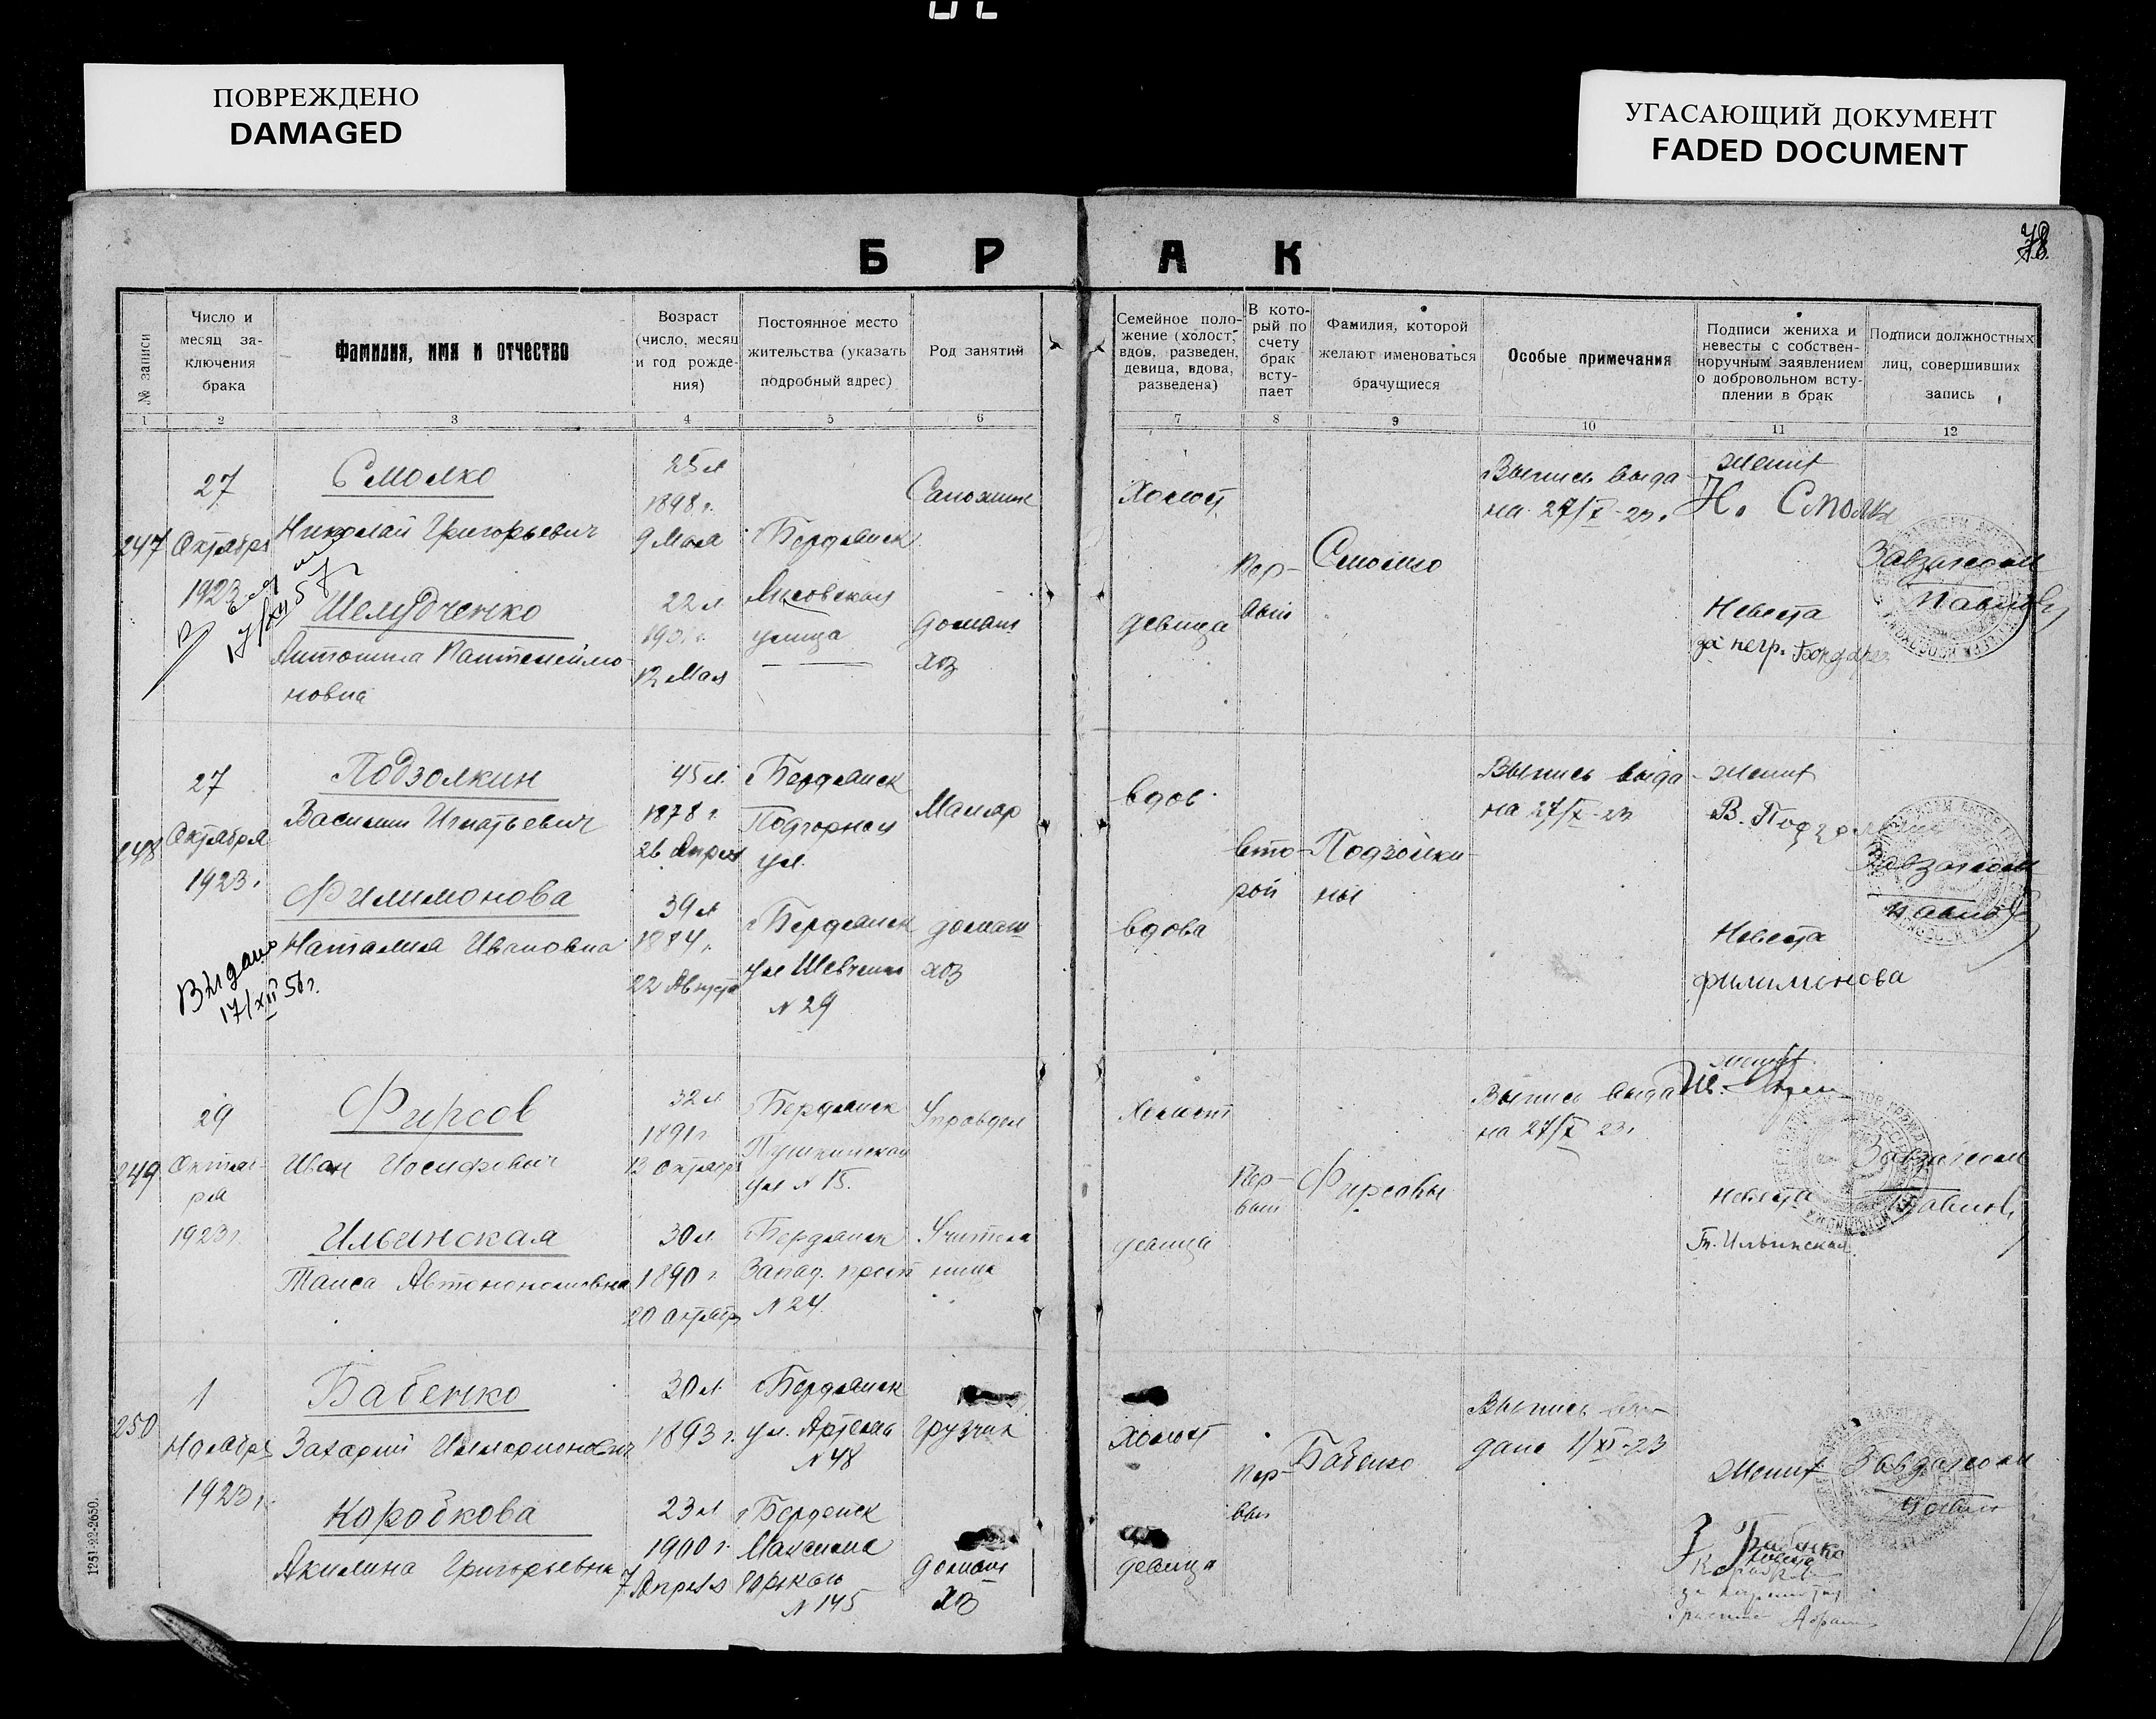 ПОВРЕЖДЕНО
DAMAGED
УГАСАЮЩИЙ ДОКУМЕНТ
FADED DOCUMENT
78
БРАК
№ записи
Число и
месяц за-
ключения
брака
Фамилия, имя и отчество
Возраст
(число, месяц
и год рожде-
ния)
Постоянное место
жительства (указать
подробный адрес)
Род занятий
Семейное поло-
жение (холост,
вдов, разведен,
девица, вдова,
разведена)
В кото-
рый по
счету
брак
всту-
пает
Фамилия, которой
желают именоваться
брачущиеся
Особые примечания
Подписи жениха и
невесты с собствен-
норучным заявлением
о добровольном всту-
плении в брак
Подписи должностных
лиц, совершивших
запись
1 2 3 4 5 6 7 8 9 10 11 12
247
27
Октября
1923
Смолко
Николай Григорьевич
Шелудченко
Антонина Пантелеймо-
новна
25 л
1898 г.
9 Мая
22 л
12 Мая
Бердянск
Лисовская
улица
Сапожник
домаш
хоз
Холост
девица
Пер-
вый
Смолко
Выпись выда-
на 27/X-23.
жених
Н. Смолко
Невеста
за негр.
Завзагсом
Павлов
248
27
Октября
1923.
Выдано
17/XII 56 г.
Подзолкин
Василий Игнатьевич
Филимонова
Наталия Ивановна
45 л.
1878 г.
26 Апрел
39 л
22 Августа
г Бердянск
Подгорная
ул.
г Бердянск
ул Шевченко
N 29
Маляр
домаш
хоз
вдов.
вдова
Вто-
рой
Подзолки-
ны
Выпись выда-
на 27/X-23
жених
В. Подзолкин
Невеста
Филимонова
Завзагсом
Павлов
249
29
Октяб-
ря
1923 г.
Фирсов
Иван Иосифович
Ильинская
Таиса Автономовна
32 л
1891 г
13 октября
30 л.
1890 г.
20 октябр
Бердянск
Пушкинская
ул N 15.
Бердянск
Запад. просп
N 24.
Управдел
Учитель
ница
Холост
девица
Пер-
вый
Фирсовы
Выпись выда
на 27/X 23.
жених
невеста
Т. Ильинская
Завзагсом
Павлов
250
1
Ноября
1923 г.
Бабенко
Захарий Илларионович
Коробкова
Акилина Григорьевна
30 л.
1893 г.
23 л
1900 г.
7 Апреля
г Бердянск
ул. Артема
N 48
г Бердянск
Максима
Горького
N 145
грузчик
домаш
хоз
холост
девица
Пер-
вый
Бабенко
Выпись вы-
дана 1/XI-23
Жених
З Бабенко
Завзагсом
Павлов
1251-22-2650.